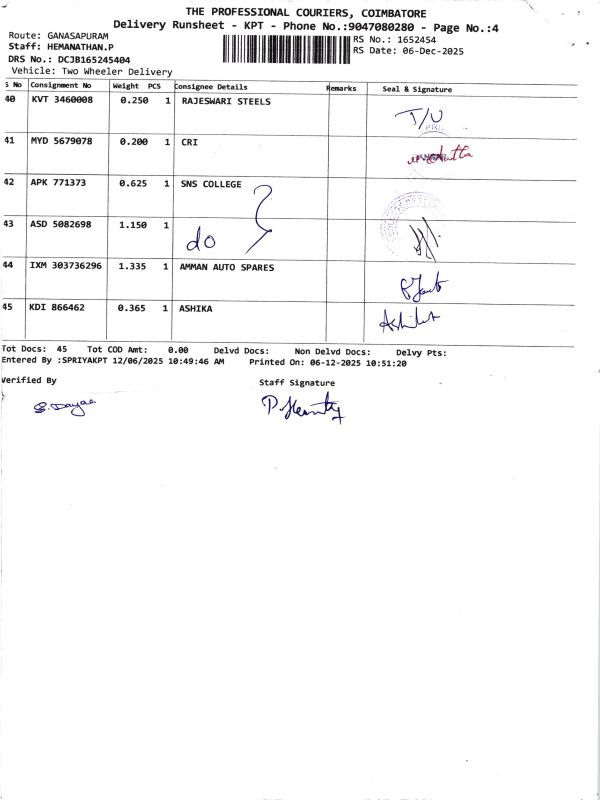 THE PROFESSIONAL COURIERS, COIMBATORE
Delivery Runsheet - KPT - Phone No.:9047080280 - Page No.:4
Route: GANASAPURAM
RS No.: 1652454
Staff: HEMANATHAN.P
RS Date: 06-Dec-2025
DRS No.: DCJB165245404
Vehicle: Two Wheeler Delivery
S No Consignment No Weight PCS Consignee Details Remarks Seal & Signature
40 KVT 3460008 0.250 1 RAJESWARI STEELS
I/U
41 MYD 5679078 0.200 1 CRI
42 APK 771373 0.625 1 SNS COLLEGE
43 ASD 5082698 1.150 1 do
44 IXM 303736296 1.335 1 AMMAN AUTO SPARES
45 KDI 866462 0.365 1 ASHIKA
Tot Docs: 45 Tot COD Amt: 0.00 Delvd Docs: Non Delvd Docs: Delvy Pts:
Entered By :SPRIYAKPT 12/06/2025 10:49:46 AM Printed On: 06-12-2025 10:51:20
Verified By Staff Signature